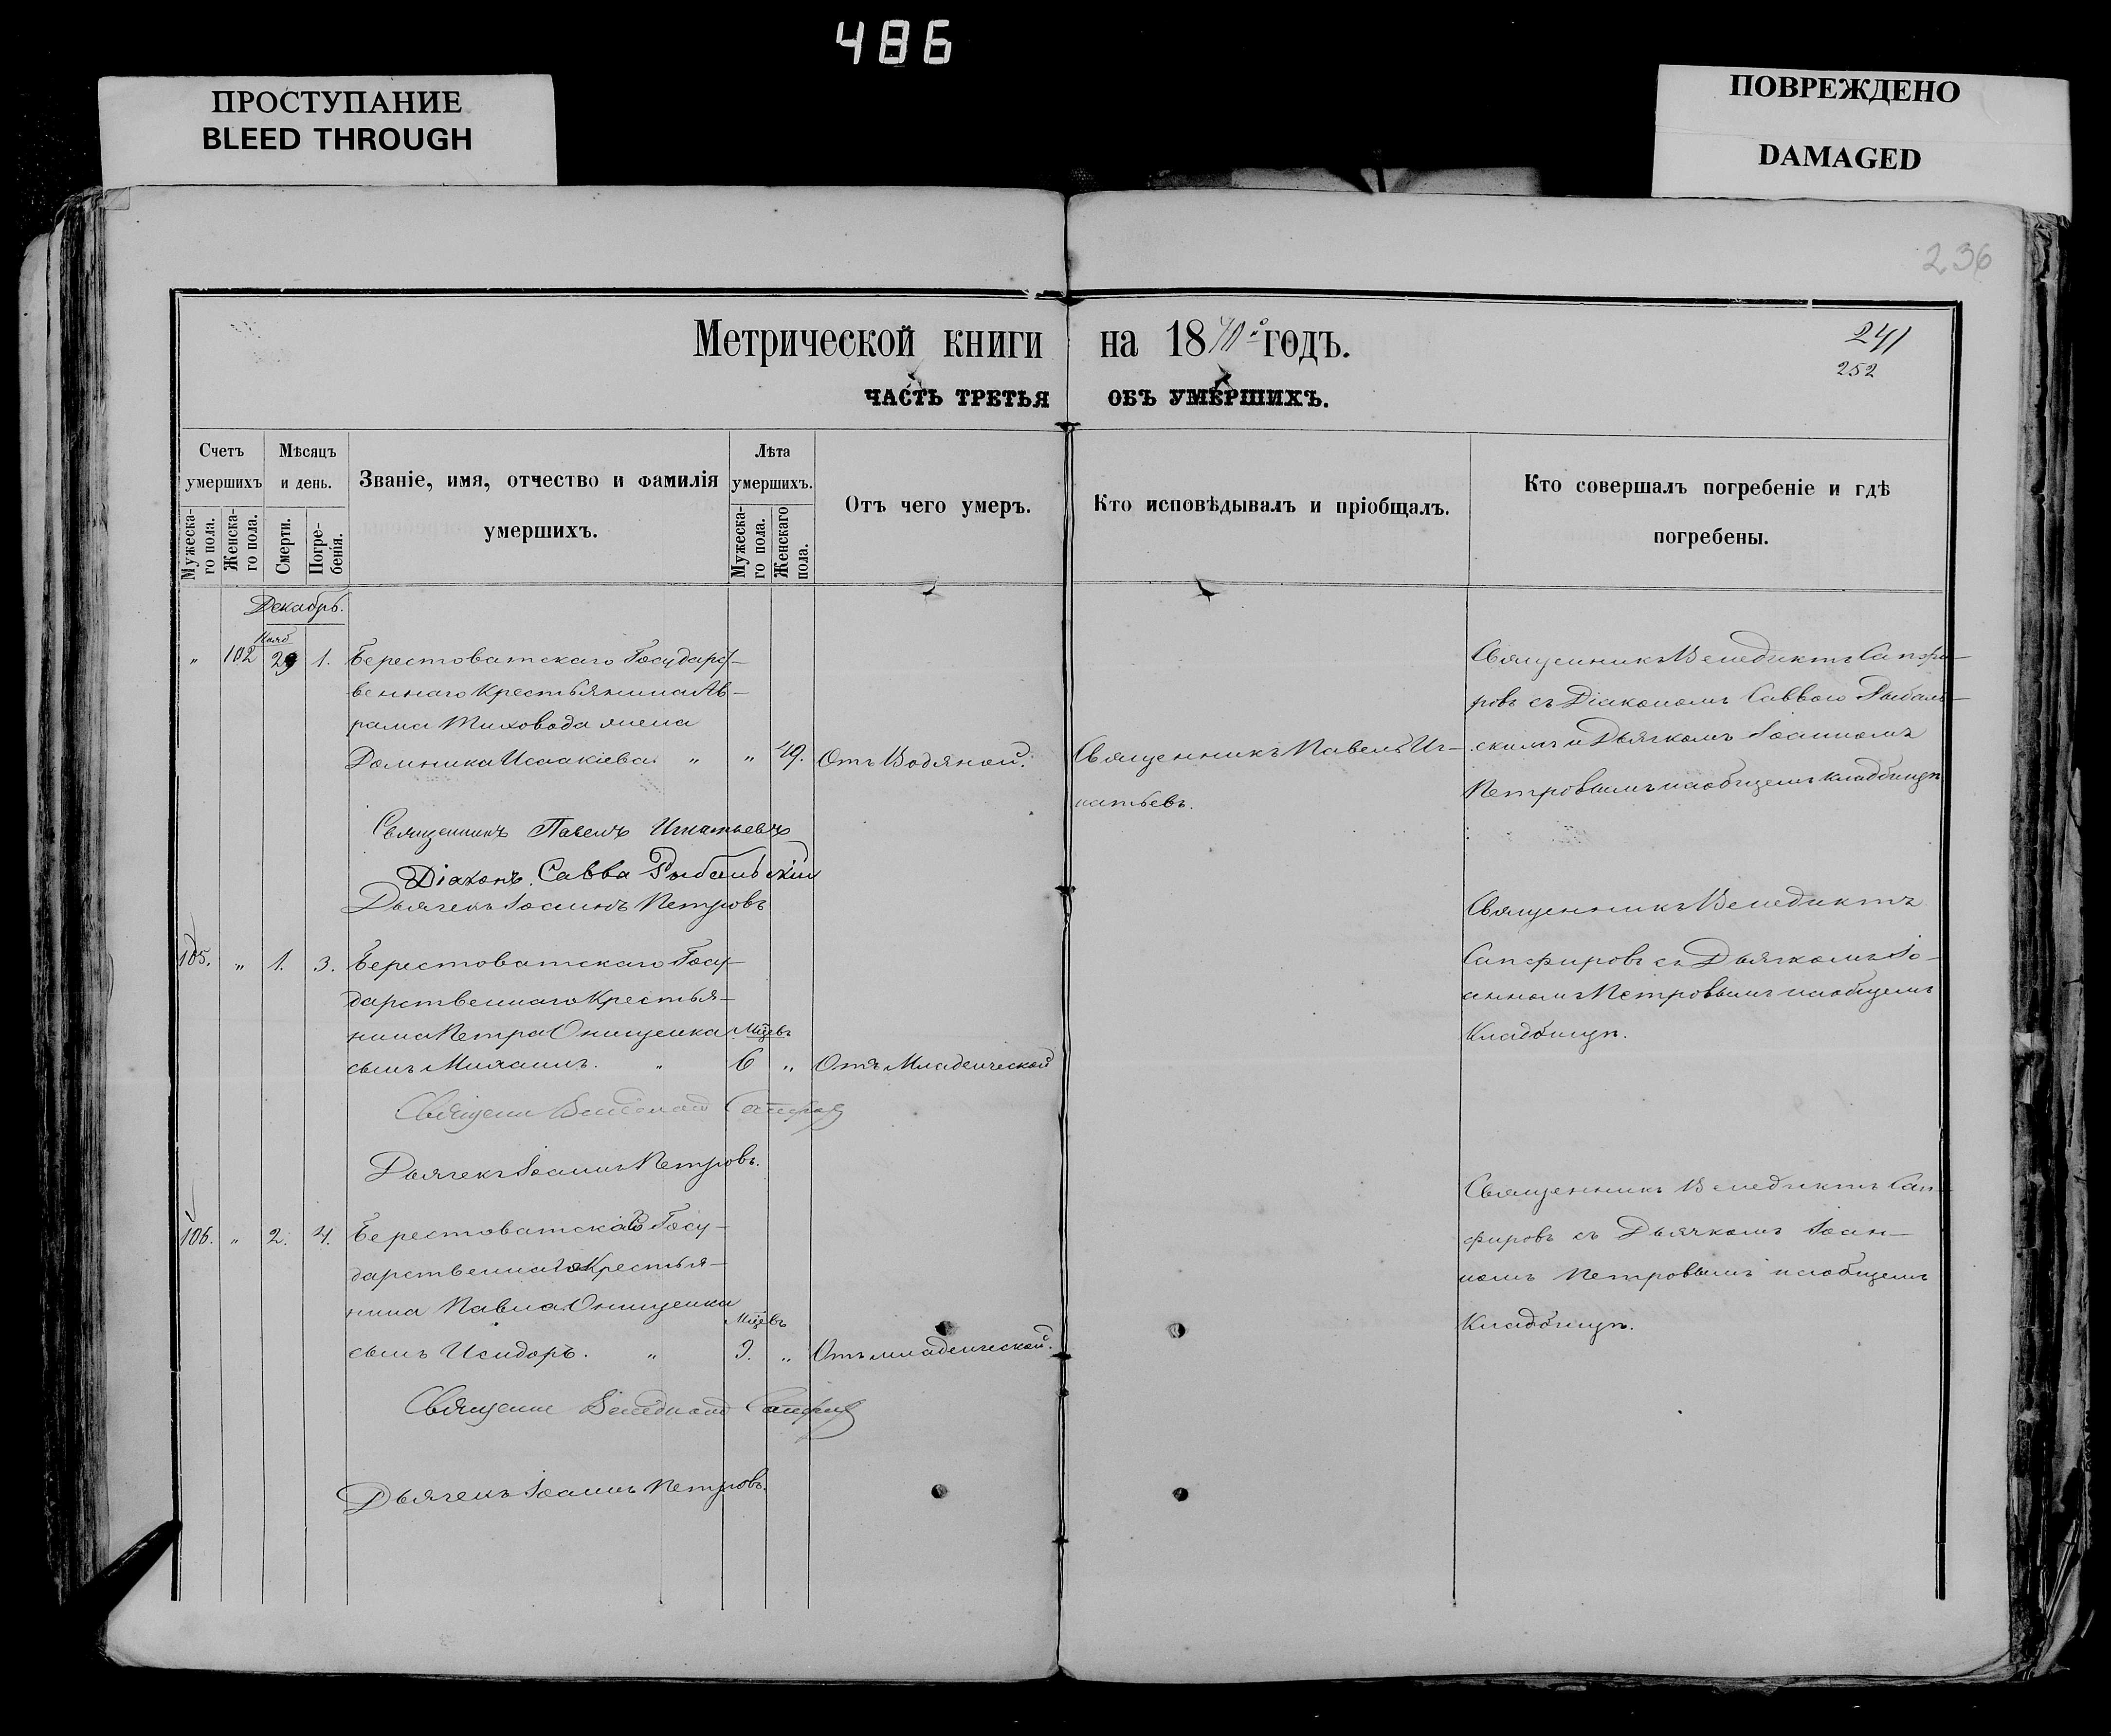 486
ПРОСТУПАНИЕ
BLEED THROUGH
ПОВРЕЖДЕНО
DAMAGED
236
Метрической книги на 1870 годъ.
241
252
ЧАСТЬ ТРЕТЬЯ ОБЪ УМЕРШИХЪ.
Счетъ умершихъ
Мужеска-го пола.
Женска-го пола.
Мѣсяцъ и день.
Смерти.
Погре-бенія.
Званіе, имя, отчество и фамилія
умершихъ.
Лѣта умершихъ.
Мужеска-го пола.
Женскаго пола.
Отъ чего умеръ.
Кто исповѣдывалъ и пріобщалъ.
Кто совершалъ погребеніе и гдѣ
погребены.
Декабрь.
Нояб
„ 102 29 1. Берестоватскаго Государст-
веннаго Крестьянина Ав-
рама Тиховода жена
Домника Исаакіева. „ „ 49. Отъ Водяной.
Священникъ Павелъ Иг-
натьевъ.
Священникъ Венедиктъ Сапфи-
ровъ съ Діакономъ Саввою Рыбаль-
скимъ и Дьячкомъ Іоанномъ
Петровымъ на общемъ кладбищѣ
Священникъ Павелъ Игнатьевъ
Діаконъ Савва Рыбальскій
Дьячекъ Іоаннъ Петровъ
105. „ 1. 3. Берестоватскаго Госу-
дарственнаго Крестья-
нина Петра Онищенка
сынъ Михаилъ. „ Мцевъ 6 „ Отъ Младенческой
Священникъ Венедиктъ
Сапфировъ съ Дьячкомъ Іо-
анномъ Петровымъ на общемъ
Кладбищѣ.
Священи Венедиктъ Сапфиров
Дьячекъ Іоаннъ Петровъ.
106. „ 2. 4. Берестоватскаго Госу-
дарственнаго Крестья-
нина Павла Онищенка
сынъ Исидоръ. „ Мцевъ 3. „ Отъ младенческой.
Священникъ Венедиктъ Сап-
фировъ съ Дьячкомъ Іоан-
номъ Петровымъ на общемъ
Кладбищѣ.
Священи Венедиктъ Сапфиров
Дьячекъ Іоаннъ Петровъ.